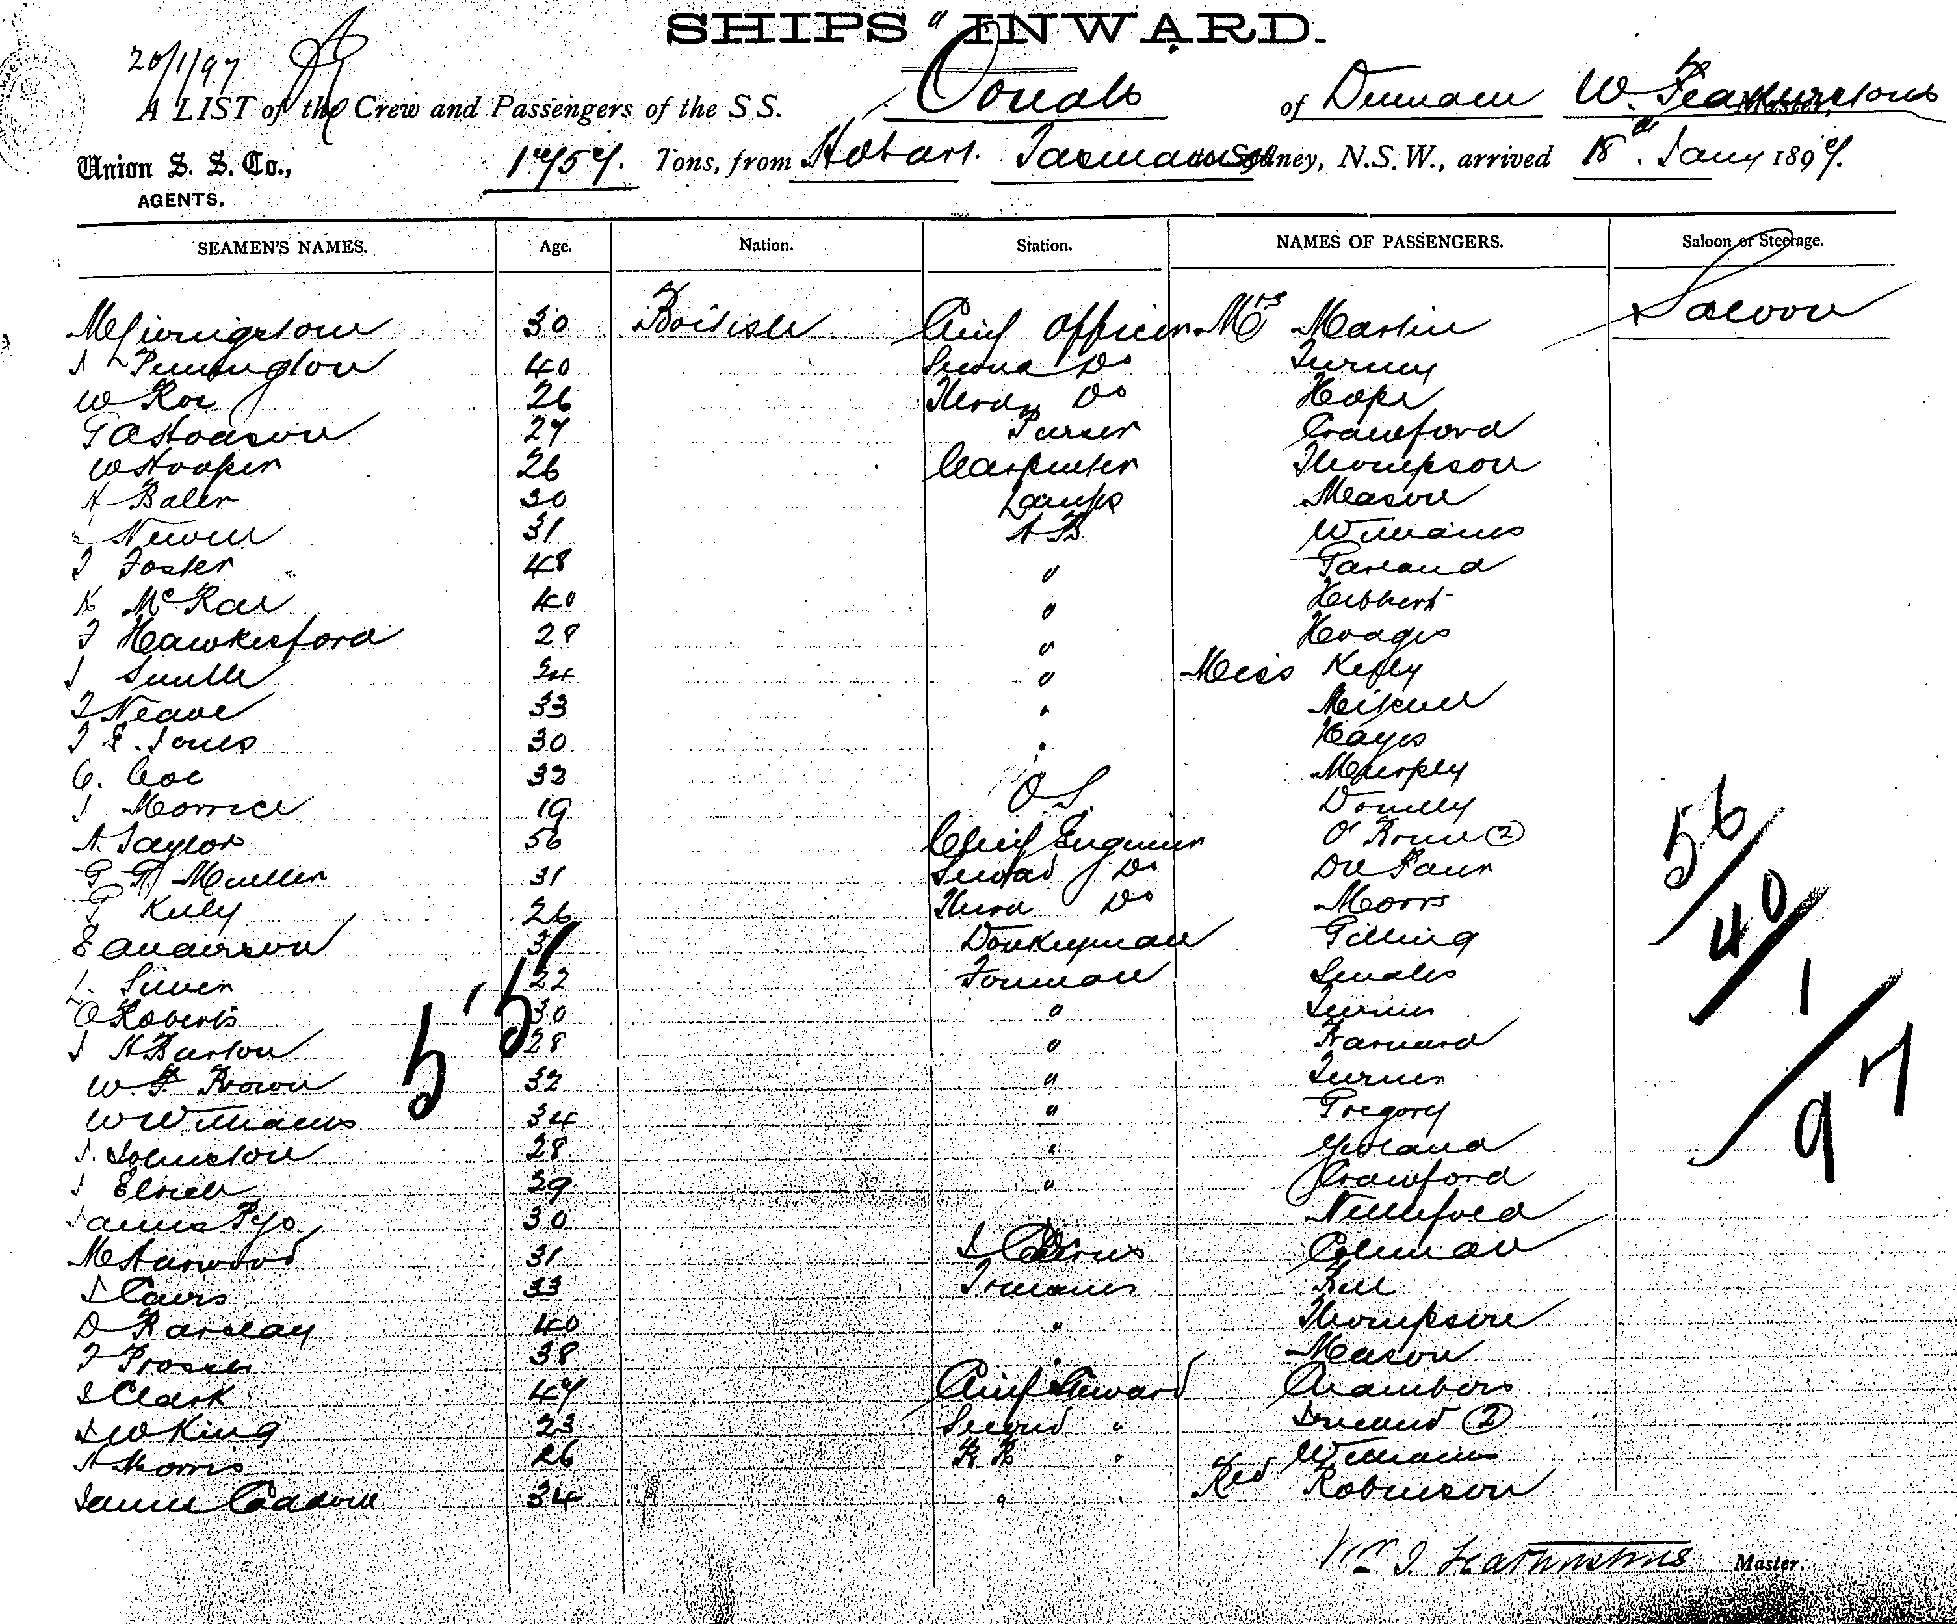 SHIPS INWARD.
20/1/97
A LIST of the Crew and Passengers of the S S. of W. Featherstone Master,
Union S. S. Co., 1757. Tons, from Hobart. Tasmania Sydney, N.S.W., arrived 18th. Jany 1897.
AGENTS.
SEAMEN'S NAMES. Age. Nation. Station. NAMES OF PASSENGERS. Saloon or Steerage.
M Livingstone 30 British Chief Officer Mrs Martin Saloon
J Pennington 40 Second Do
W Roe 26 Third Do Hope
27 Purser Crawford
W Hooper 26 Carpenter Thompson
A Baler 30 Lamps Mason
31 A B Williams
J Foster 48 " Garland
K McRae 40 " Hibbert
J Hawkesford 28 " Hodges
J Smith 34 " Miss
J Neave 33 "
J E. Jones 30 " Hayes
C. Coe 33 Murphy
J Morrice 19 O S Donelly
A Taylor 56 Chief Engineer (2)
Mueller 31 Second Do
Kelly 26 Third Do Morris
E Anderson Donkeyman Gilling
22 Foreman
O Roberts 30 " Turner
J A Barton 28 " Barnard
W F Brown 32 " Turner
W Williams 34 " Gregory
J. Johnston 28 "
J 39 " Crawford
James 30
M Harwood 31 Coleman
J Cairs 33 Trimmers Bell
D Barclay 40 " Thompson
J Prosser 38 " Mason
J Clark 47 Chief Steward Chambers
J W King 23 Second " (2)
A Morris 26 " Williams
James 34 " " Rev Robinson
55
56
40
1
97
Wm J. Featherstone Master.